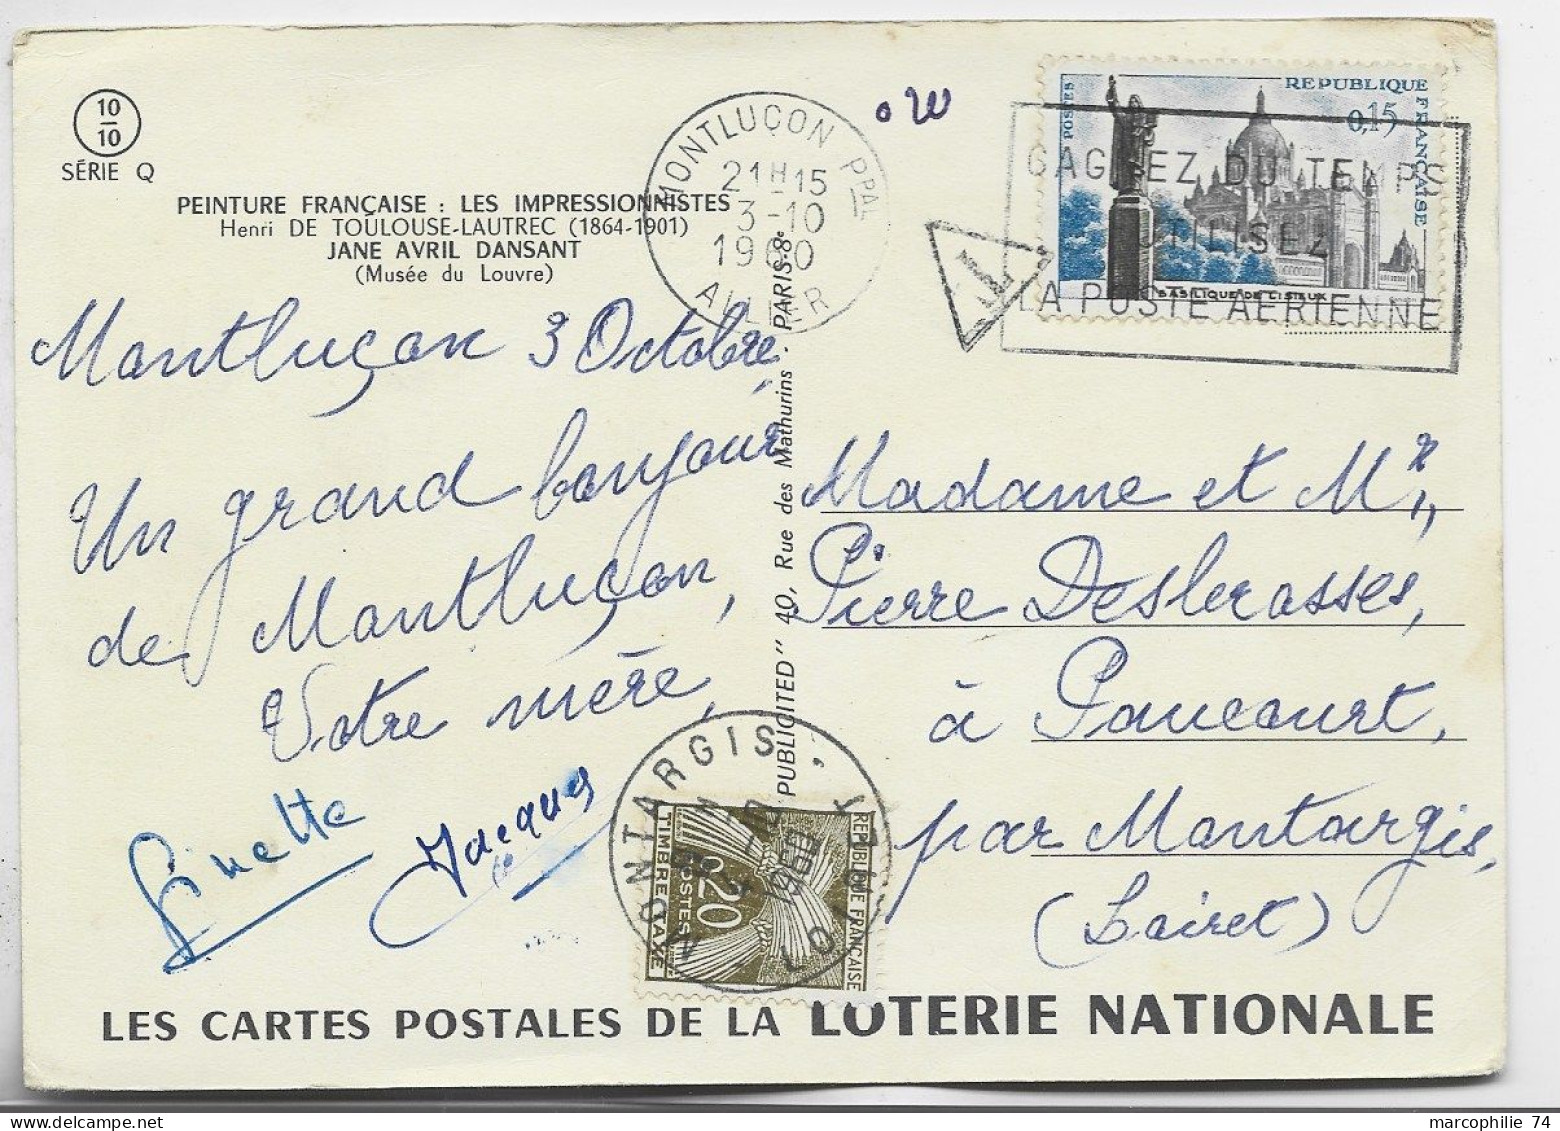 10
10
SÉRIE Q
PEINTURE FRANÇAISE : LES IMPRESSIONNISTES
Henri DE TOULOUSE-LAUTREC (1864-1901)
JANE AVRIL DANSANT
(Musée du Louvre)
MONTLUÇON PPAL
21H15
3-10
1960
ALLIER
REPUBLIQUE FRANÇAISE
POSTES
0,15
BASILIQUE DE LISIEUX
GAGNEZ DU TEMPS
UTILISEZ
LA POSTE AERIENNE
T
Montluçon 3 Octobre,
Un grand bonjour
de Montluçon,
Votre mère,
Ginette
Jacques
PUBLICITED" 40, Rue des Mathurins - PARIS-8e
Madame et Mr,,
Pierre Deslerasses,
à Paucourt,
par Montargis,
(Loiret)
MONTARGIS
LOIRET
1960
REPUBLIQUE FRANÇAISE
0,20
POSTES
TIMBRE TAXE
LES CARTES POSTALES DE LA LOTERIE NATIONALE
marcophilie 74